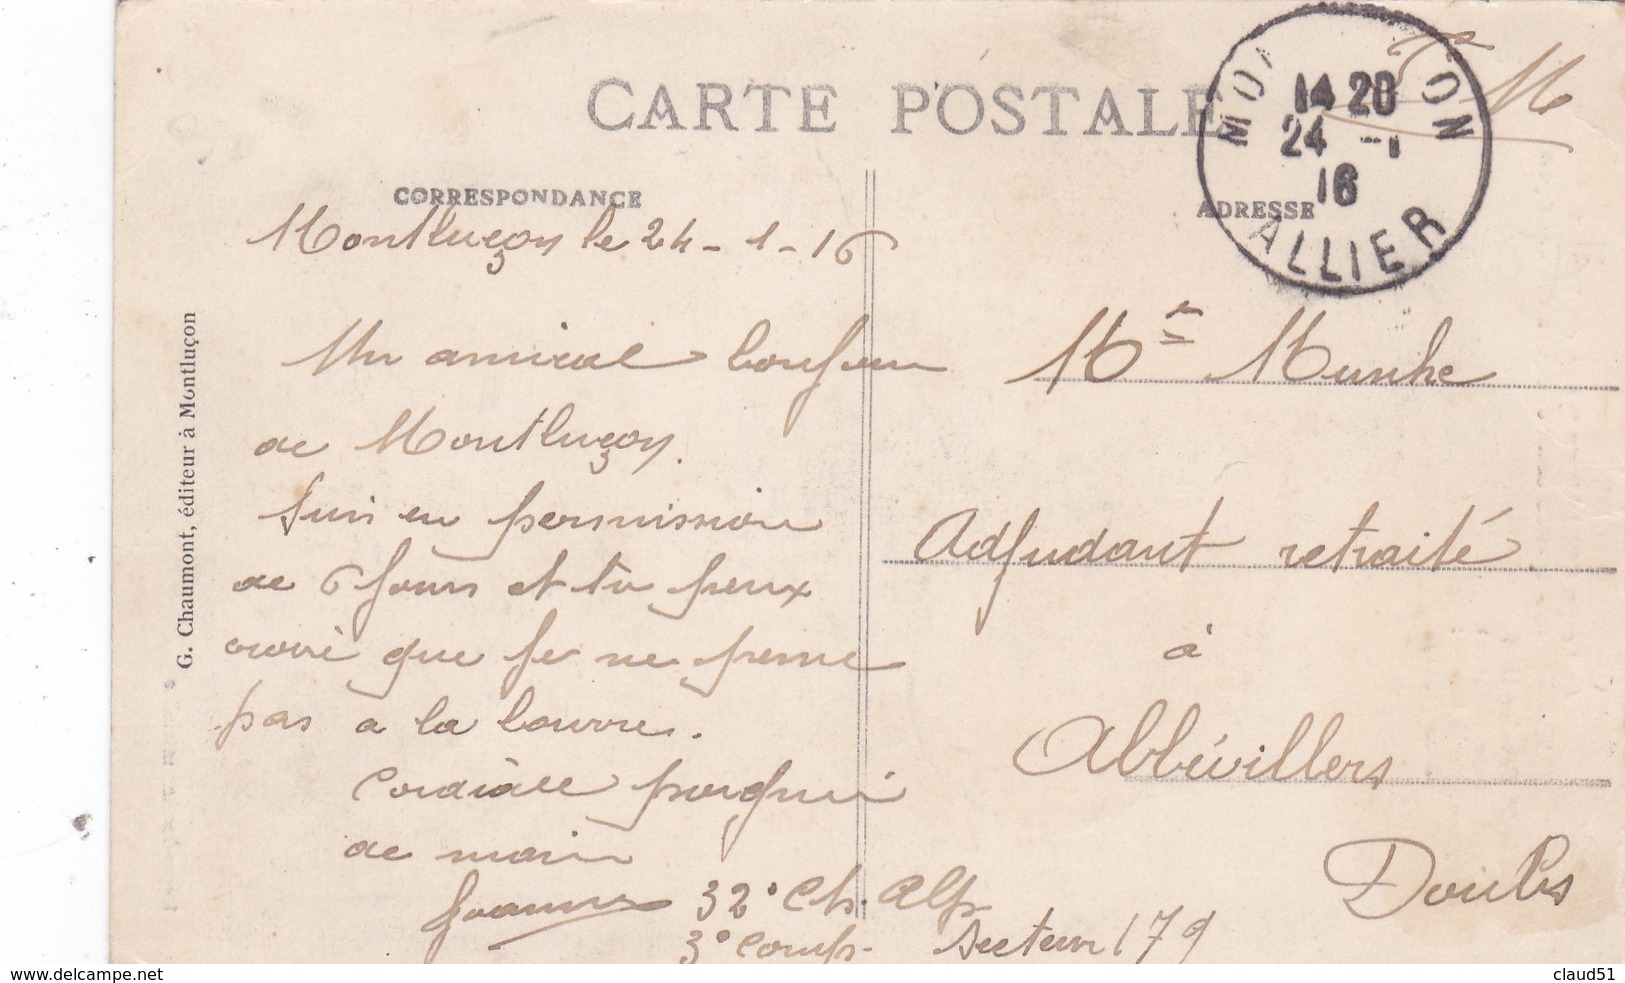 F M
CARTE POSTALE
MON ON
14 20
24 -1
16
ALLIER
CORRESPONDANCE
ADRESSE
Montluçon le 24-1-16
Un amical bonjour
de Montluçon.
Suis en permission
de 6 jours et tu peux
croire que je ne pense
pas a la
Cordiale poignée
de main
32e Ch. Alp
3e Comp. Secteur 179
Mr Munhe
Adjudant retraité
à
Abbévillers
Doubs
G. Chaumont, éditeur à Montluçon
delcampe.net
claud51